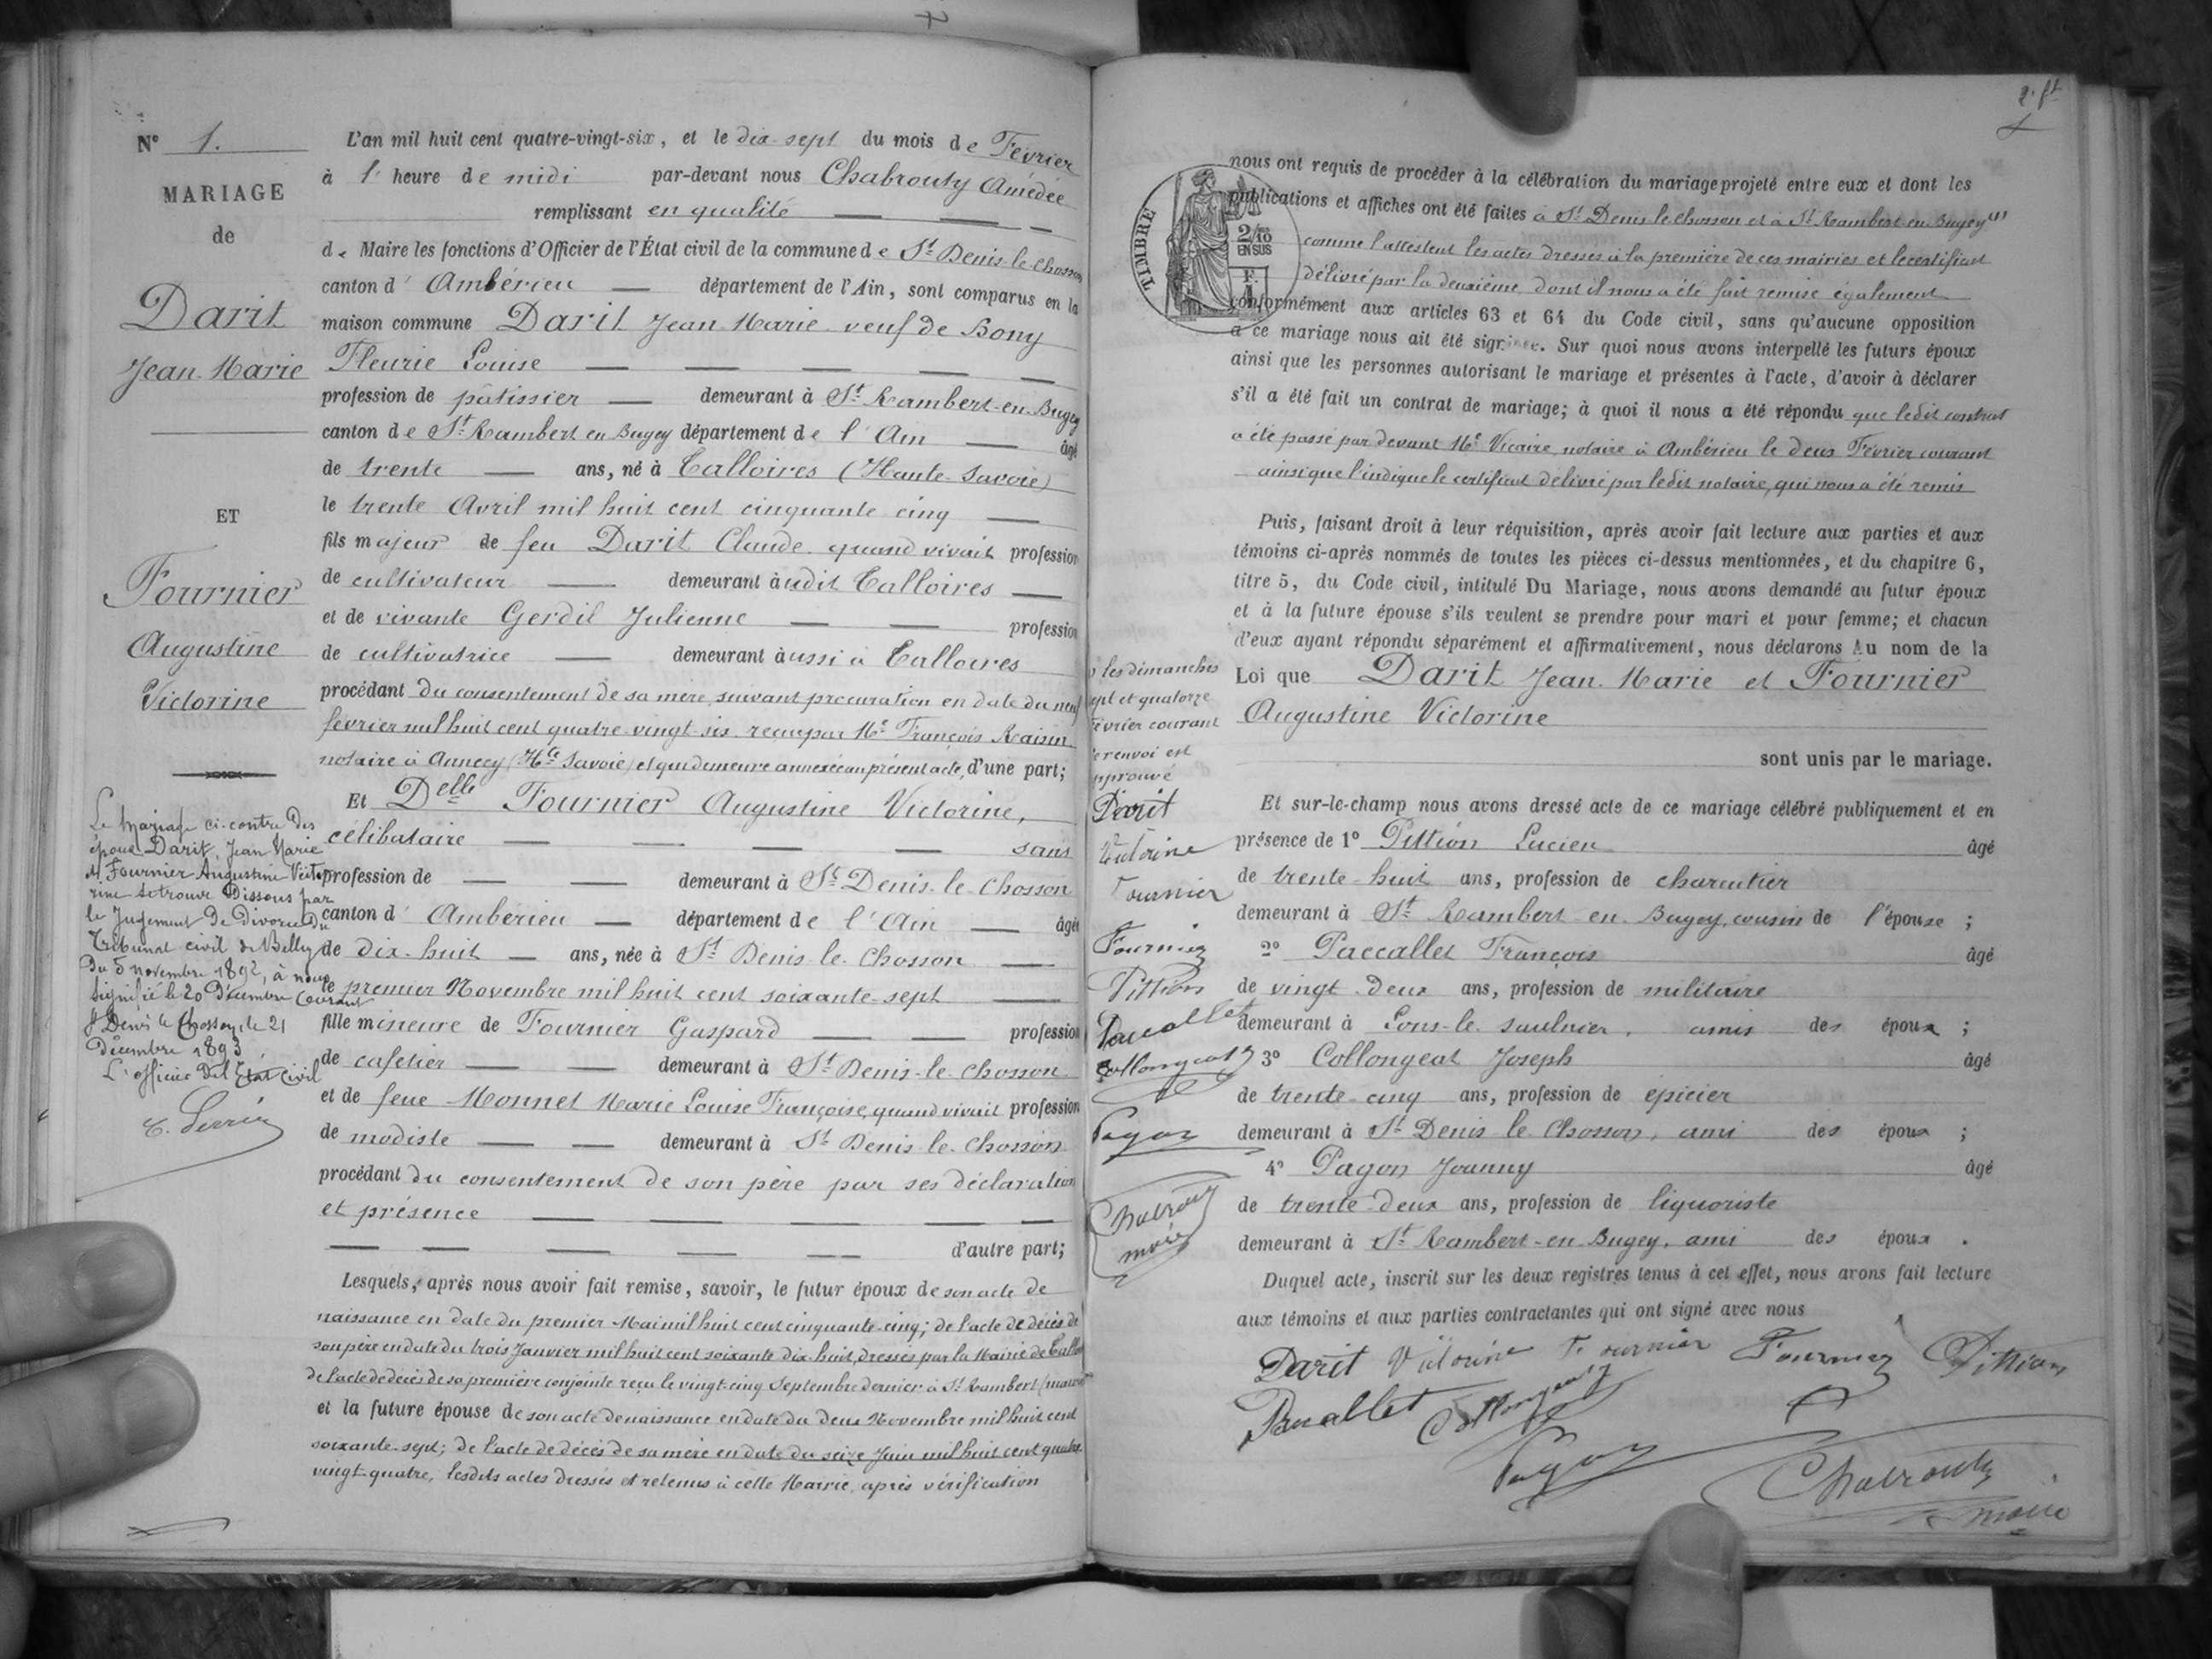 N° 1.
MARIAGE
de
Darit
Jean-Marie
ET
Fournier
Augustine
Victorine
Le Mariage ci-contre des
époux Darit, Jean Marie
et Fournier Augustine Victo
rine se trouve Dissous par
le Jugement de Divorce du
Tribunal civil de Belley
du 5 novembre 1892, à nous
signifié le 20 Décembre Courant
St Denis le Chosson, le 21
Décembre 1893
L'officier de l'Etat Civil
L'an mil huit cent quatre-vingt-six, et le dix-sept du mois de Février
à 1' heure de midi par-devant nous Chabrouty Amédée
remplissant en qualité
de Maire les fonctions d'Officier de l'État civil de la commune de St Denis-le-Chosson
canton d' Ambérieu département de l'Ain, sont comparus en la
maison commune Darit Jean-Marie veuf de Bony
Fleurie Louise
profession de pâtissier demeurant à St Rambert-en-Bugey
canton de St Rambert en Bugey département de l'Ain âgé
de trente ans, né à Talloires (Haute-Savoie)
le trente Avril mil huit cent cinquante cinq
fils majeur de feu Darit Claude quand vivait profession
de cultivateur demeurant àudit Talloires
et de vivante Gerdil Julienne profession
de cultivatrice demeurant àussi à Talloires
procédant du consentement de sa mère, suivant procuration en date du neuf
février mil huit cent quatre-vingt-six reçue par Me François Raisin
notaire à Annecy (Hte Savoie) et qui demeure annexée au présent acte, d'une part;
Et Delle Fournier Augustine Victorine,
célibataire sans
profession de demeurant à St Denis-le-Chosson
canton d' Ambérieu département de l'Ain âgée
de dix-huit ans, née à St Denis-le-Chosson
le premier Novembre mil huit cent soixante-sept
fille mineure de Fournier Gaspard profession
de cafetier demeurant à St Denis-le-Chosson
et de feue Monnet Marie Louise Françoise, quand vivait profession
de modiste demeurant à St Denis-le-Chosson
procédant du consentement de son père par ses déclaration
et présence
d'autre part;
Lesquels, après nous avoir fait remise, savoir, le futur époux de son acte de
naissance en date du premier Mai mil huit cent cinquante-cinq; de l'acte de décès de
son père en date du trois Janvier mil huit cent soixante dix-huit, dressés par la Mairie de Tallo
de l'acte de décès de sa première conjointe reçu le vingt-cinq Septembre dernier à St Rambert
et la future épouse de son acte de naissance en date du deux Novembre mil huit cent
soixante-sept; de l'acte de décès de sa mère en date du seize Juin mil huit cent quatre
vingt-quatre, lesdits actes dressés et retenus à cette Mairie, après vérification
nous ont requis de procéder à la célébration du mariage projeté entre eux et dont les
publications et affiches ont été faites à St Denis le Chosson et à St Rambert-en-Bugey (1)
comme l'attestent les actes dressés à la première de ces mairies et le certificat
délivré par la deuxième dont il nous a été fait remise également
conformément aux articles 63 et 64 du Code civil, sans qu'aucune opposition
à ce mariage nous ait été signifiée. Sur quoi nous avons interpellé les futurs époux
ainsi que les personnes autorisant le mariage et présentes à l'acte, d'avoir à déclarer
s'il a été fait un contrat de mariage; à quoi il nous a été répondu que ledit contrat
a été passé par devant Me Vicaire, notaire à Ambérieu le deux Février courant
ainsi que l'indique le certificat délivré par ledit notaire, qui nous a été remis
TIMBRE
2/10
EN SUS
Puis, faisant droit à leur réquisition, après avoir fait lecture aux parties et aux
témoins ci-après nommés de toutes les pièces ci-dessus mentionnées, et du chapitre 6,
titre 5, du Code civil, intitulé Du Mariage, nous avons demandé au futur époux
et à la future épouse s'ils veulent se prendre pour mari et pour femme; et chacun
d'eux ayant répondu séparément et affirmativement, nous déclarons Au nom de la
Loi que Darit Jean-Marie et Fournier
Augustine Victorine
sont unis par le mariage.
les dimanches
sept et quatorze
Février courant
renvoi est
approuvé
Darit
Victorine
Fournier
Fournier
Pittion
Paccallet
Collongeat J
Pagon
Chabrouty
maire
Et sur-le-champ nous avons dressé acte de ce mariage célébré publiquement et en
présence de 1° Pittion Lucien âgé
de trente-huit ans, profession de charcutier
demeurant à St Rambert-en-Bugey, cousin de l'épouse ;
2° Paccallet François âgé
de vingt-deux ans, profession de militaire
demeurant à Lons-le-saulnier, amis des époux ;
3° Collongeat Joseph âgé
de trente-cinq ans, profession de épicier
demeurant à St Denis-le-Chosson, ami des époux ;
4° Pagon Joanny âgé
de trente-deux ans, profession de liquoriste
demeurant à St Rambert-en-Bugey, ami des époux .
Duquel acte, inscrit sur les deux registres tenus à cet effet, nous avons fait lecture
aux témoins et aux parties contractantes qui ont signé avec nous
Darit Victorine Fournier Fournier Pittion
Paccallet Collongeat J
Pagon
Chabrouty
maire